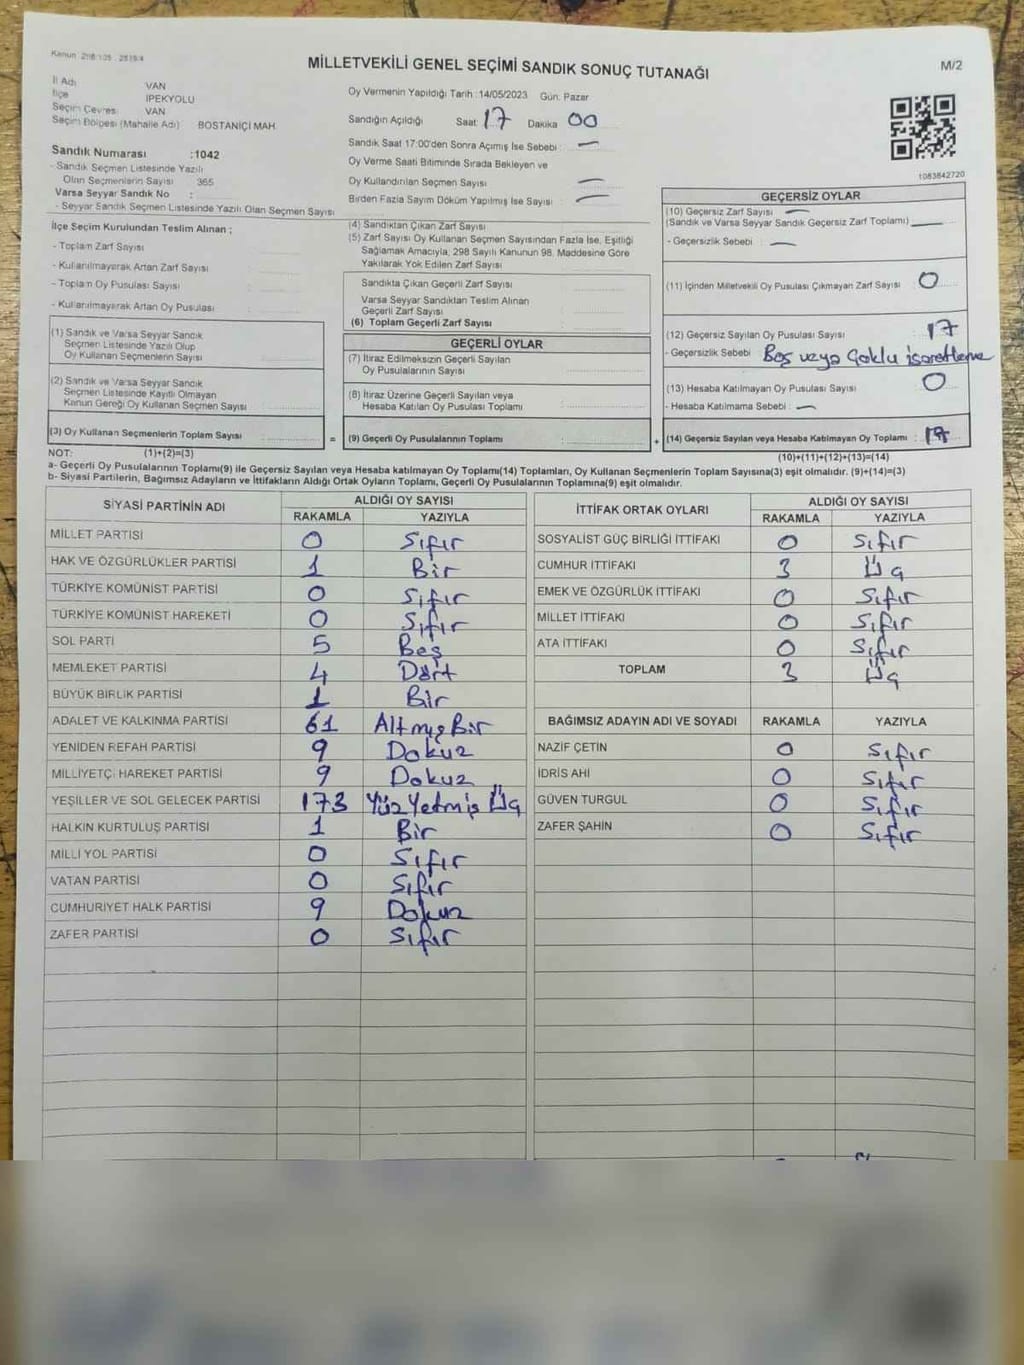 Kanun: 298/105 - 2839/4
MİLLETVEKİLİ GENEL SEÇİMİ SANDIK SONUÇ TUTANAĞI
M/2
İl Adı VAN
İlçe İPEKYOLU
Seçim Çevresi VAN
Seçim Bölgesi (Mahalle Adı) BOSTANİÇİ MAH.
Oy Vermenin Yapıldığı Tarih :14/05/2023 Gün: Pazar
Sandığın Açıldığı Saat 17 Dakika 00
Sandık Saat 17:00'den Sonra Açılmış İse Sebebi : —
Oy Verme Saati Bitiminde Sırada Bekleyen ve
Oy Kullandırılan Seçmen Sayısı —
Birden Fazla Sayım Döküm Yapılmış İse Sayısı : —
1083842720
Sandık Numarası :1042
- Sandık Seçmen Listesinde Yazılı
Olan Seçmenlerin Sayısı 365
Varsa Seyyar Sandık No :
- Seyyar Sandık Seçmen Listesinde Yazılı Olan Seçmen Sayısı
İlçe Seçim Kurulundan Teslim Alınan ;
- Toplam Zarf Sayısı
- Kullanılmayarak Artan Zarf Sayısı
- Toplam Oy Pusulası Sayısı
- Kullanılmayarak Artan Oy Pusulası
(1) Sandık ve Varsa Seyyar Sandık
Seçmen Listesinde Yazılı Olup
Oy Kullanan Seçmenlerin Sayısı
(2) Sandık ve Varsa Seyyar Sandık
Seçmen Listesinde Kayıtlı Olmayan
Kanun Gereği Oy Kullanan Seçmen Sayısı
(3) Oy Kullanan Seçmenlerin Toplam Sayısı =
(4) Sandıktan Çıkan Zarf Sayısı
(5) Zarf Sayısı Oy Kullanan Seçmen Sayısından Fazla İse, Eşitliği
Sağlamak Amacıyla, 298 Sayılı Kanunun 98. Maddesine Göre
Yakılarak Yok Edilen Zarf Sayısı
Sandıkta Çıkan Geçerli Zarf Sayısı
Varsa Seyyar Sandıktan Teslim Alınan
Geçerli Zarf Sayısı
(6) Toplam Geçerli Zarf Sayısı
GEÇERLİ OYLAR
(7) İtiraz Edilmeksizin Geçerli Sayılan
Oy Pusulalarının Sayısı
(8) İtiraz Üzerine Geçerli Sayılan veya
Hesaba Katılan Oy Pusulası Toplamı
(9) Geçerli Oy Pusulalarının Toplamı +
GEÇERSİZ OYLAR
(10) Geçersiz Zarf Sayısı —
(Sandık ve Varsa Seyyar Sandık Geçersiz Zarf Toplamı) —
- Geçersizlik Sebebi : —
(11) İçinden Milletvekili Oy Pusulası Çıkmayan Zarf Sayısı : 0
(12) Geçersiz Sayılan Oy Pusulası Sayısı 17
- Geçersizlik Sebebi Boş veya Çoklu işaretleme
(13) Hesaba Katılmayan Oy Pusulası Sayısı 0
- Hesaba Katılmama Sebebi : —
(14) Geçersiz Sayılan veya Hesaba Katılmayan Oy Toplamı : 17
NOT: (1)+(2)=(3)
(10)+(11)+(12)+(13)=(14)
a- Geçerli Oy Pusulalarının Toplamı(9) ile Geçersiz Sayılan veya Hesaba katılmayan Oy Toplamı(14) Toplamları, Oy Kullanan Seçmenlerin Toplam Sayısına(3) eşit olmalıdır. (9)+(14)=(3)
b- Siyasi Partilerin, Bağımsız Adayların ve İttifakların Aldığı Ortak Oyların Toplamı, Geçerli Oy Pusulalarının Toplamına(9) eşit olmalıdır.
SİYASİ PARTİNİN ADI ALDIĞI OY SAYISI
RAKAMLA YAZIYLA
MİLLET PARTİSİ 0 Sıfır
HAK VE ÖZGÜRLÜKLER PARTİSİ 1 Bir
TÜRKİYE KOMÜNİST PARTİSİ 0 Sıfır
TÜRKİYE KOMÜNİST HAREKETİ 0 Sıfır
SOL PARTİ 5 Beş
MEMLEKET PARTİSİ 4 Dört
BÜYÜK BİRLİK PARTİSİ 1 Bir
ADALET VE KALKINMA PARTİSİ 61 Altmış Bir
YENİDEN REFAH PARTİSİ 9 Dokuz
MİLLİYETÇİ HAREKET PARTİSİ 9 Dokuz
YEŞİLLER VE SOL GELECEK PARTİSİ 173 Yüz Yetmiş Üç
HALKIN KURTULUŞ PARTİSİ 1 Bir
MİLLİ YOL PARTİSİ 0 Sıfır
VATAN PARTİSİ 0 Sıfır
CUMHURİYET HALK PARTİSİ 9 Dokuz
ZAFER PARTİSİ 0 Sıfır
İTTİFAK ORTAK OYLARI ALDIĞI OY SAYISI
RAKAMLA YAZIYLA
SOSYALİST GÜÇ BİRLİĞİ İTTİFAKI 0 Sıfır
CUMHUR İTTİFAKI 3 Üç
EMEK VE ÖZGÜRLÜK İTTİFAKI 0 Sıfır
MİLLET İTTİFAKI 0 Sıfır
ATA İTTİFAKI 0 Sıfır
TOPLAM 3 Üç
BAĞIMSIZ ADAYIN ADI VE SOYADI RAKAMLA YAZIYLA
NAZİF ÇETİN 0 Sıfır
İDRİS AHİ 0 Sıfır
GÜVEN TURGUL 0 Sıfır
ZAFER ŞAHİN 0 Sıfır